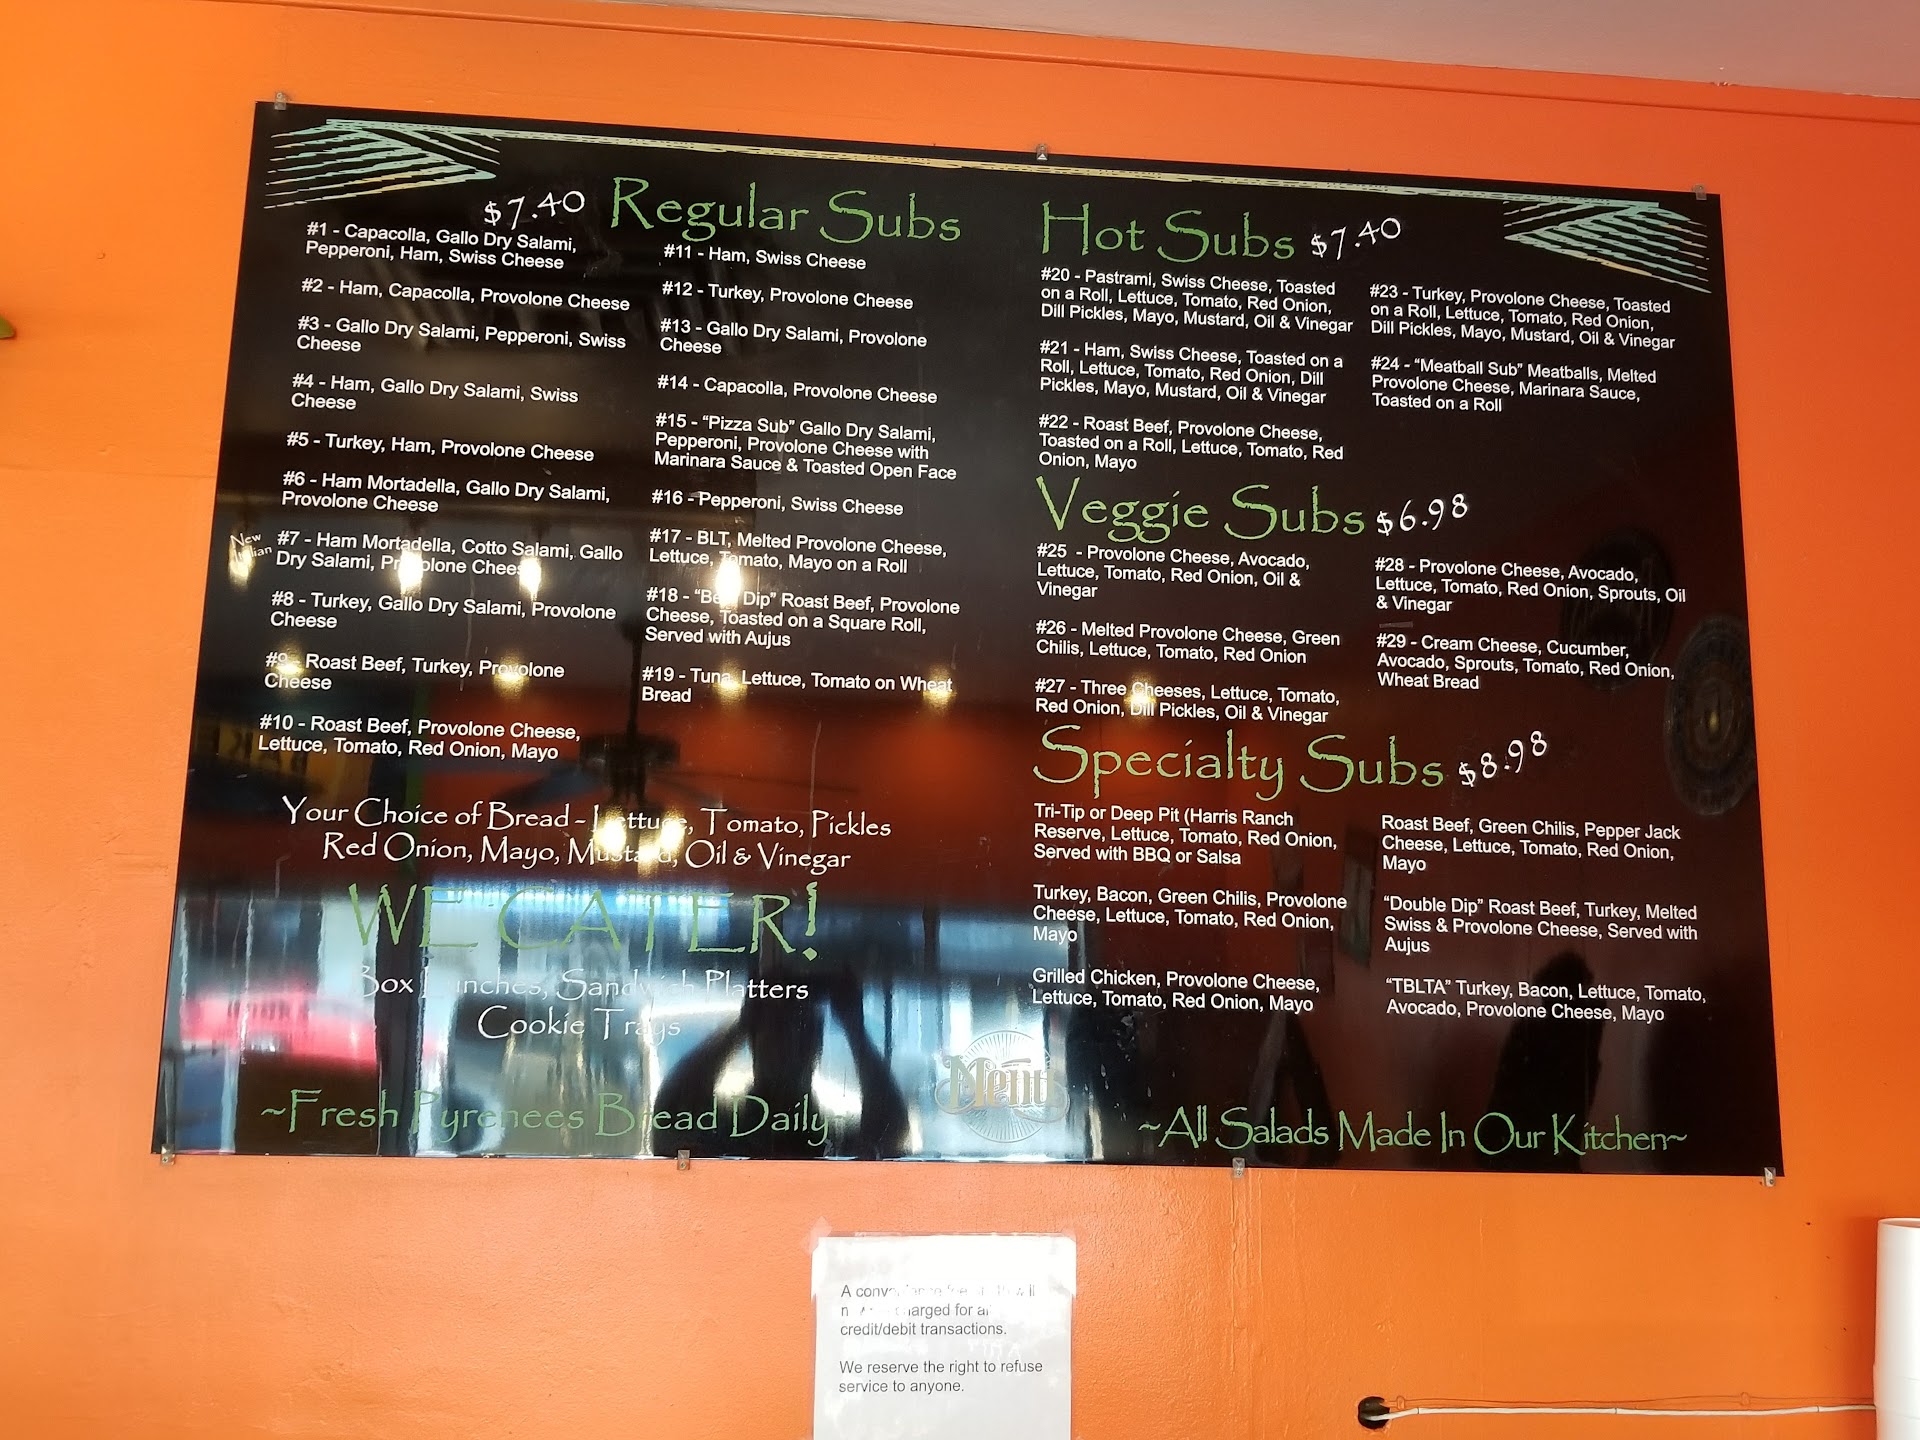 $7.40 Regular Subs
#1 - Capacolla, Gallo Dry Salami,
Pepperoni, Ham, Swiss Cheese
#2 - Ham, Capacolla, Provolone Cheese
#3 - Gallo Dry Salami, Pepperoni, Swiss
Cheese
#4 - Ham, Gallo Dry Salami, Swiss
Cheese
#5 - Turkey, Ham, Provolone Cheese
#6 - Ham Mortadella, Gallo Dry Salami,
Provolone Cheese
New
Italian
#7 - Ham Mortadella, Cotto Salami, Gallo
Dry Salami, Provolone Cheese
#8 - Turkey, Gallo Dry Salami, Provolone
Cheese
#9 - Roast Beef, Turkey, Provolone
Cheese
#10 - Roast Beef, Provolone Cheese,
Lettuce, Tomato, Red Onion, Mayo
#11 - Ham, Swiss Cheese
#12 - Turkey, Provolone Cheese
#13 - Gallo Dry Salami, Provolone
Cheese
#14 - Capacolla, Provolone Cheese
#15 - “Pizza Sub” Gallo Dry Salami,
Pepperoni, Provolone Cheese with
Marinara Sauce & Toasted Open Face
#16 - Pepperoni, Swiss Cheese
#17 - BLT, Melted Provolone Cheese,
Lettuce, Tomato, Mayo on a Roll
#18 - “Beef Dip” Roast Beef, Provolone
Cheese, Toasted on a Square Roll,
Served with Aujus
#19 - Tuna, Lettuce, Tomato on Wheat
Bread
Your Choice of Bread - Lettuce, Tomato, Pickles
Red Onion, Mayo, Mustard, Oil & Vinegar
WE CATER!
Box Lunches, Sandwich Platters
Cookie Trays
~Fresh Pyrenees Bread Daily~
Hot Subs $7.40
#20 - Pastrami, Swiss Cheese, Toasted
on a Roll, Lettuce, Tomato, Red Onion,
Dill Pickles, Mayo, Mustard, Oil & Vinegar
#21 - Ham, Swiss Cheese, Toasted on a
Roll, Lettuce, Tomato, Red Onion, Dill
Pickles, Mayo, Mustard, Oil & Vinegar
#22 - Roast Beef, Provolone Cheese,
Toasted on a Roll, Lettuce, Tomato, Red
Onion, Mayo
#23 - Turkey, Provolone Cheese, Toasted
on a Roll, Lettuce, Tomato, Red Onion,
Dill Pickles, Mayo, Mustard, Oil & Vinegar
#24 - “Meatball Sub” Meatballs, Melted
Provolone Cheese, Marinara Sauce,
Toasted on a Roll
Veggie Subs $6.98
#25 - Provolone Cheese, Avocado,
Lettuce, Tomato, Red Onion, Oil &
Vinegar
#26 - Melted Provolone Cheese, Green
Chilis, Lettuce, Tomato, Red Onion
#27 - Three Cheeses, Lettuce, Tomato,
Red Onion, Dill Pickles, Oil & Vinegar
#28 - Provolone Cheese, Avocado,
Lettuce, Tomato, Red Onion, Sprouts, Oil
& Vinegar
#29 - Cream Cheese, Cucumber,
Avocado, Sprouts, Tomato, Red Onion,
Wheat Bread
Specialty Subs $8.98
Tri-Tip or Deep Pit (Harris Ranch
Reserve, Lettuce, Tomato, Red Onion,
Served with BBQ or Salsa
Turkey, Bacon, Green Chilis, Provolone
Cheese, Lettuce, Tomato, Red Onion,
Mayo
Grilled Chicken, Provolone Cheese,
Lettuce, Tomato, Red Onion, Mayo
Roast Beef, Green Chilis, Pepper Jack
Cheese, Lettuce, Tomato, Red Onion,
Mayo
“Double Dip” Roast Beef, Turkey, Melted
Swiss & Provolone Cheese, Served with
Aujus
“TBLTA” Turkey, Bacon, Lettuce, Tomato,
Avocado, Provolone Cheese, Mayo
Menu
~All Salads Made In Our Kitchen~
A
charged for
credit/debit transactions.
We reserve the right to refuse
service to anyone.